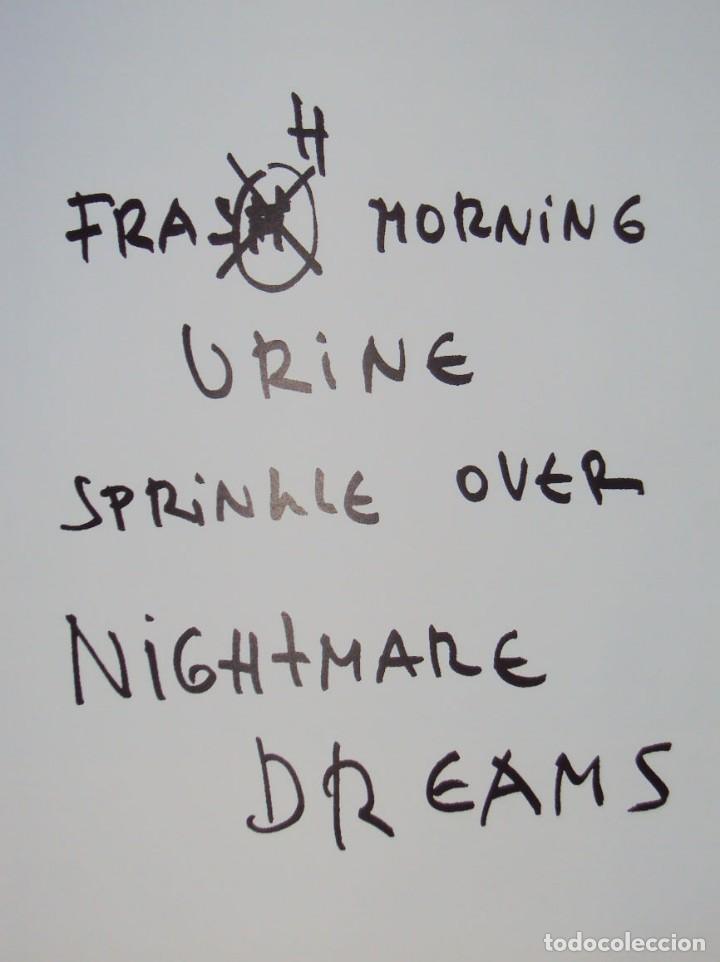 FRASH MORNING
URINE
SPRINKLE OVER
NIGHTMARE
DREAMS
todocoleccion